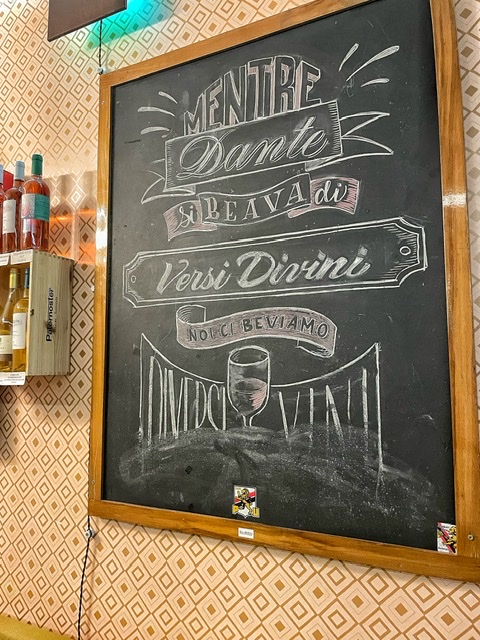 MENTRE
Dante
si BEAVA di
Versi Divini
NOI CI BEVIAMO
DIVERSI VINI
Paternoster